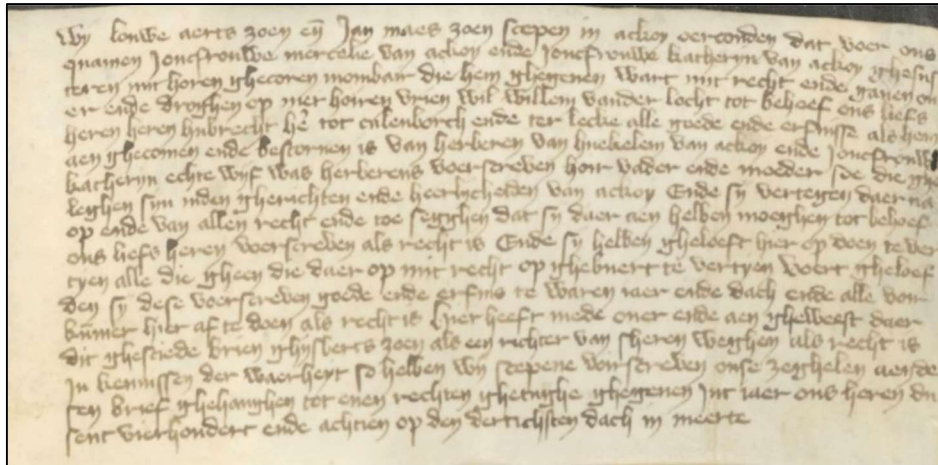 Wij louwe aerts zoen en̄ Jan maes zoen scepen in ackoy oerconden dat voer ons
quamen Joncfrouwe mercelie van ackoy ende Joncfrouwe katheryn van ackoy ghesus
teren mit horen ghecoren mombair die hem ghegeven wart mit recht ende gaven ou
er ende droghen op mit hoiren vrien wil willem vander locht tot behoef ons liefs
heren heren hubrecht he͛ tot culenborch ende ter lecke alle goede ende erfnisse als hem
aen ghecomen ende bestorven is van herberen van hoekelem van ackoy ende Joncfrouwe
katheryn echte wyf was herberens voerscreven hoir vader ende moeder soe die ghe
leghen sijn inden gherichten ende heerlycheiden van ackoy Ende sy vertegen daer na
op ende van allen recht ende toe segghen dat sy daer aen hebben moeghen tot behoef
ons liefs heren voerscreven als recht is Ende sy hebben gheloeft hier op doen te ver
tyen alle die gheen die daer op mit recht op ghebuert te vertyen Voert gheloef
den sy dese voerscreven goede ende erfnis te waren iaer ende dach ende alle voir
kūmer hier af te doen als recht is Hier heeft mede over ende aen gheweest daer
dit ghesciede brien ghysberts zoen als een richter van sheren weghen als recht is
In kennissen der waerheyt so hebben wy scepene voirscreven onse zeghelen aen de
sen brief ghehanghen tot enen rechten ghetughe ghegeven Int iaer ons heren du
sent vierhondert ende achtien op den dertichsten dach in meerte